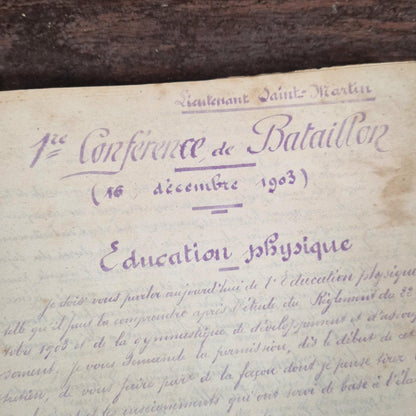 Lieutenant Saint-Martin
1re Conférence de Bataillon
(16 décembre 1903)
Education physique
Je dois vous parler aujourd'hui de l'Education physique
telle qu'il faut la comprendre après l'étude du Règlement du 22
octobre 1902 et de la gymnastique de développement et d'assou
plissement, je vous demande la permission, dès le début de cet
de vous faire part de la façon dont je pense tirer
les enseignements qui ont servi de base à l'éla